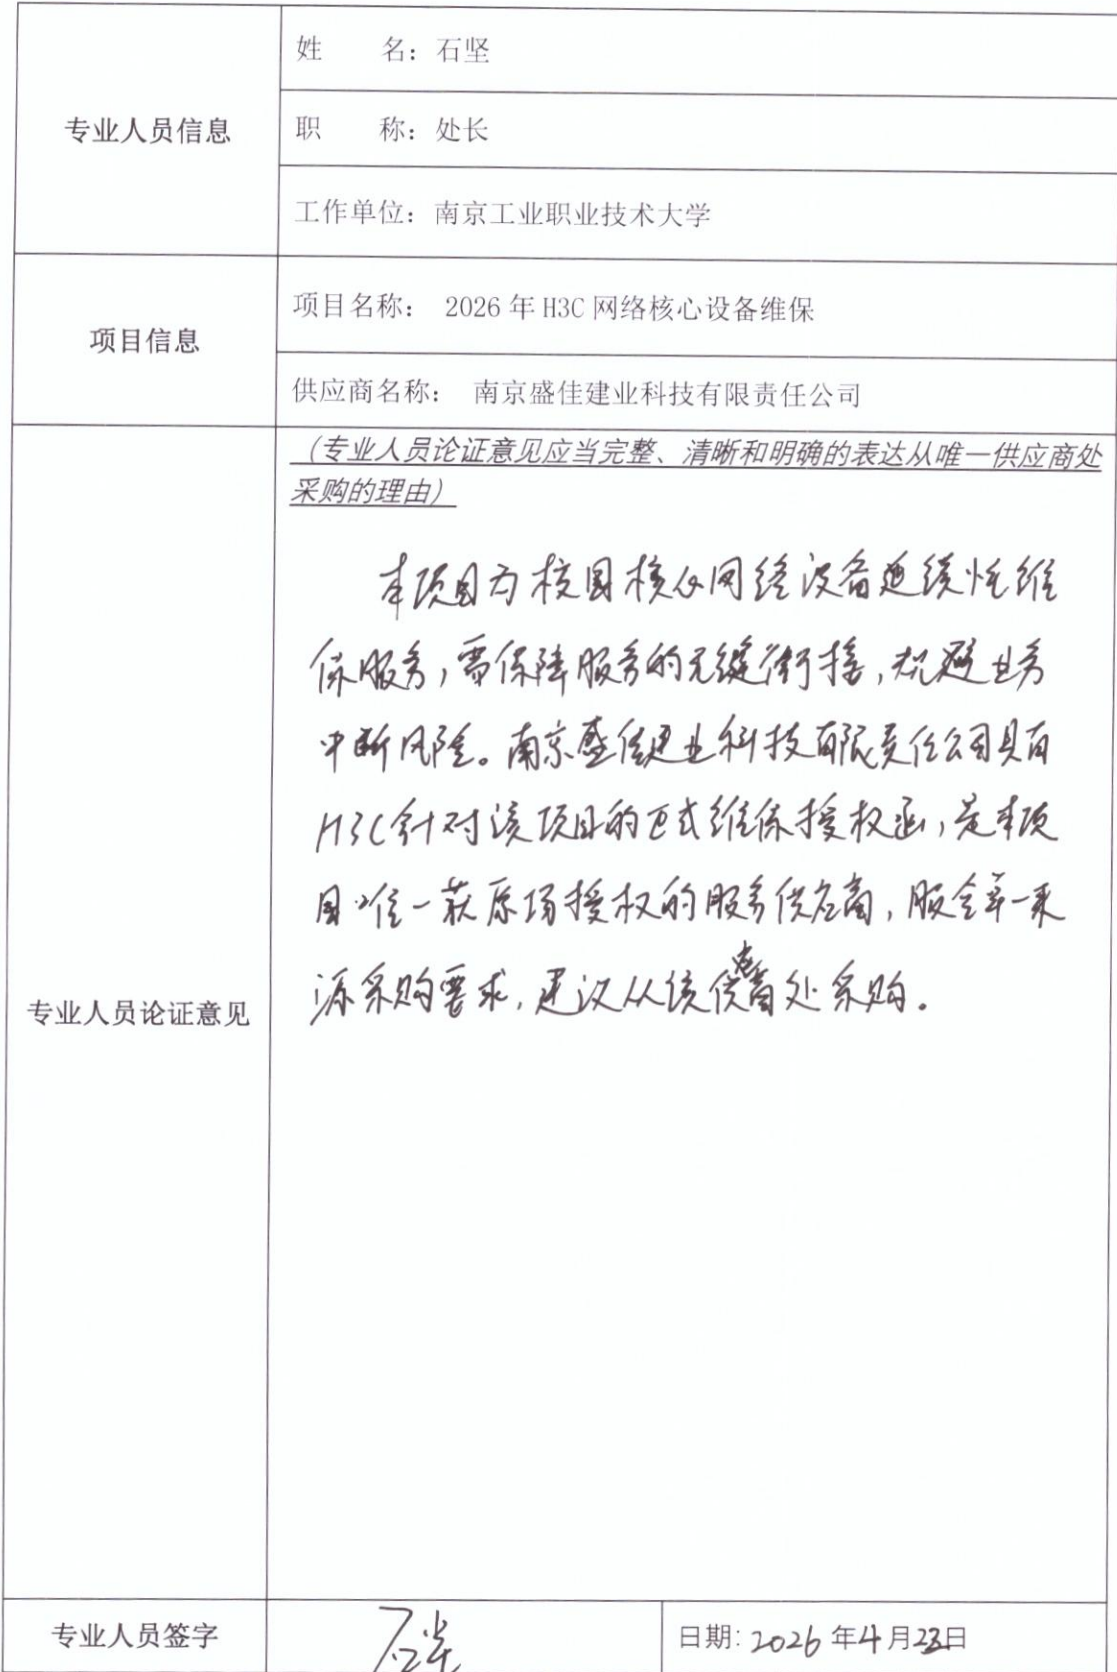 专业人员信息
姓　　名：石坚
职　　称：处长
工作单位：南京工业职业技术大学
项目信息
项目名称： 2026 年 H3C 网络核心设备维保
供应商名称： 南京盛佳建业科技有限责任公司
专业人员论证意见
（专业人员论证意见应当完整、清晰和明确的表达从唯一供应商处
采购的理由）
本项目为校园核心网络设备延续性维
保服务，需保障服务的无缝衔接，规避业务
中断风险。南京盛佳建业科技有限责任公司具有
H3C针对该项目的正式维保授权函，是本项
目唯一获原场授权的服务供应商，服合单一来
源采购要求，建议从该供应商处采购。
专业人员签字
石坚
日期：2026 年 4 月 23 日